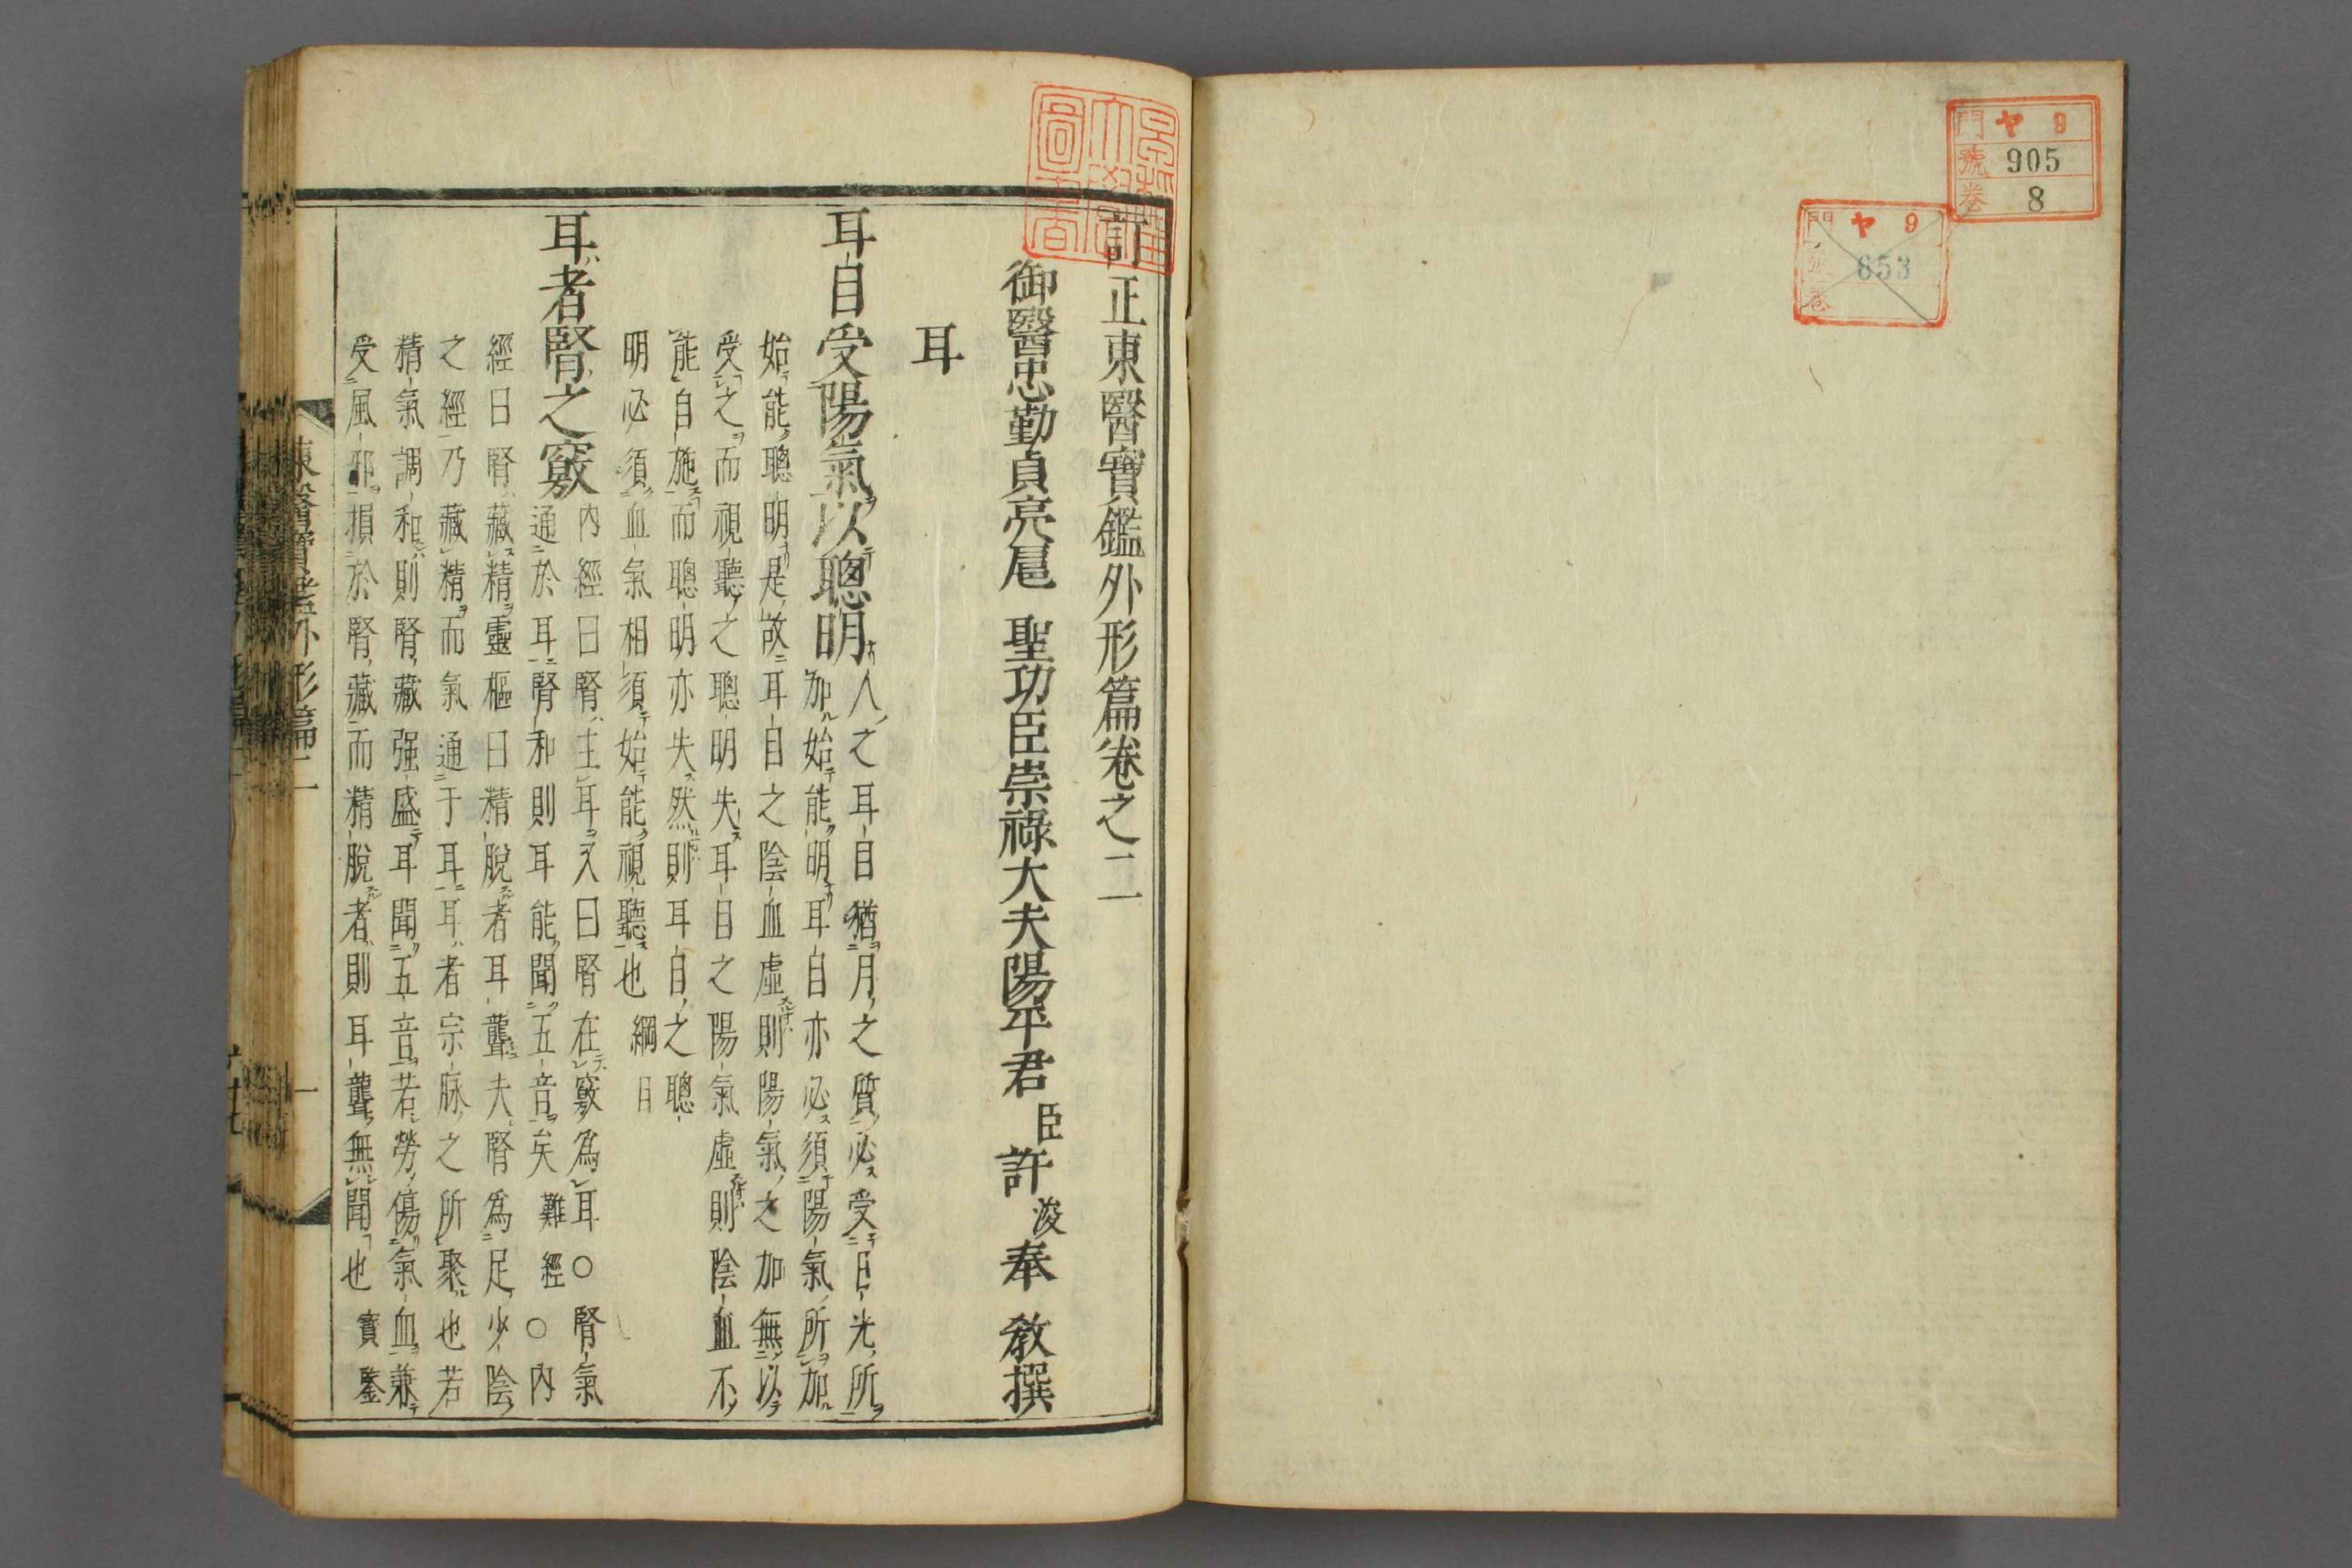 門 ヤ 9
號 905
卷 8
門 ヤ 9
號 653
卷
訂正東醫寶鑑外形篇卷之二
御醫忠勤貞亮扈 聖功臣崇祿大夫陽平君 臣 許 浚 奉 教撰
耳
耳目受陽氣以聰明 人之耳目猶月之質必受日光所
加始能明耳目亦必須陽氣所加
始能聰明是故耳目之陰血虛則陽氣之加無以
受之而視聽之聰明失耳目之陽氣虛則陰血不
能自施而聰明亦失然則耳目之聰
明必須血氣相須始能視聽也 綱目
耳者腎之竅 內經曰腎主耳又曰腎在竅爲耳○腎氣
通於耳腎和則耳能聞五音矣 難經 ○內
經曰腎藏精靈樞曰精脫者耳聾夫腎爲足少陰
之經乃藏精而氣通于耳耳者宗脉之所聚也若
精氣調和則腎藏强盛耳聞五音若勞傷氣血兼
受風邪損於腎藏而精脫者則耳聾無聞也 寶鑒
東醫寶鑑外形篇二 一